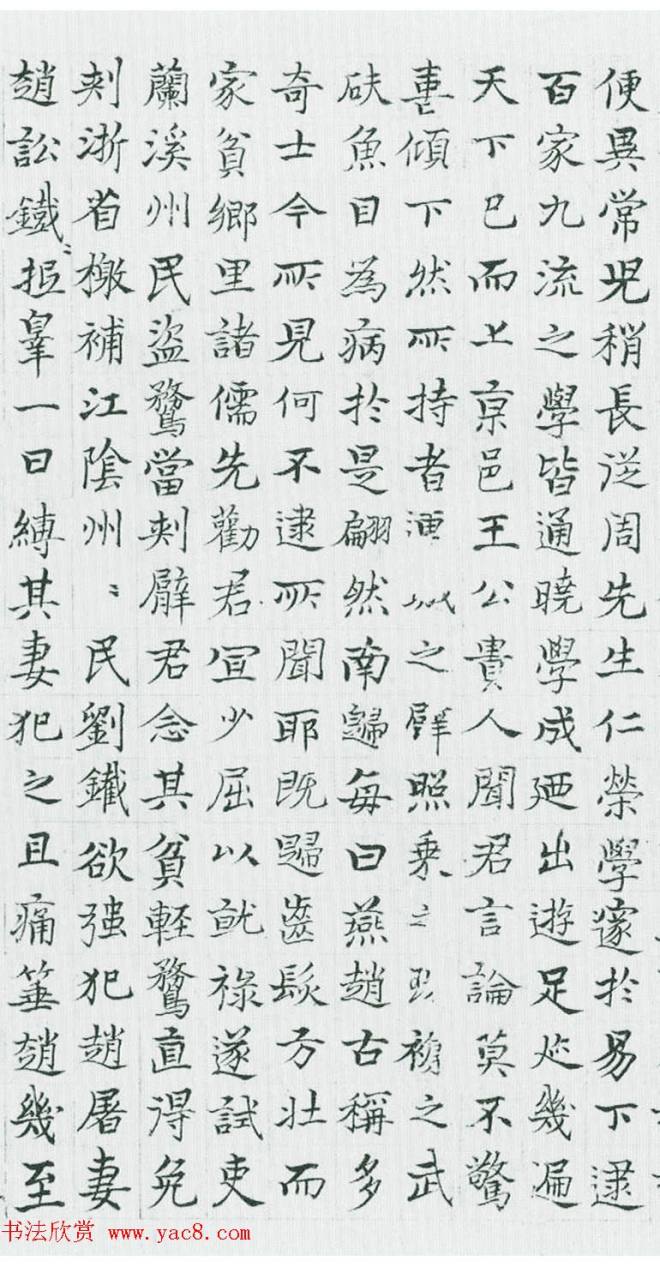 便異常兒稍長從周先生仁榮學邃扵易下逮
百家九流之學皆通曉學成廼出遊足迹幾遍
天下已而上京邑王公貴人聞君言論莫不驚
喜傾下然所持者之璧照乗之之武
砆魚目為病扵是翩然南歸每曰燕趙古稱多
奇士今所見何不逮所聞耶既歸齒髮方壯而
家貧鄉里諸儒先勸君宜少屈以就祿遂試吏
蘭溪州民盜鶩當刾臂君念其貧輕鶩直得免
刾浙省檄補江陰州〻民劉鐵欲强犯趙屠妻
趙訟鐵〻抵辠一日縛其妻犯之且痛箠趙幾至
书法欣赏 www.yac8.com